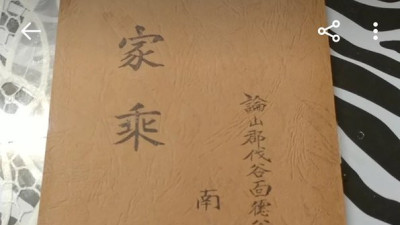 家乘
論山郡伐谷面德谷
南